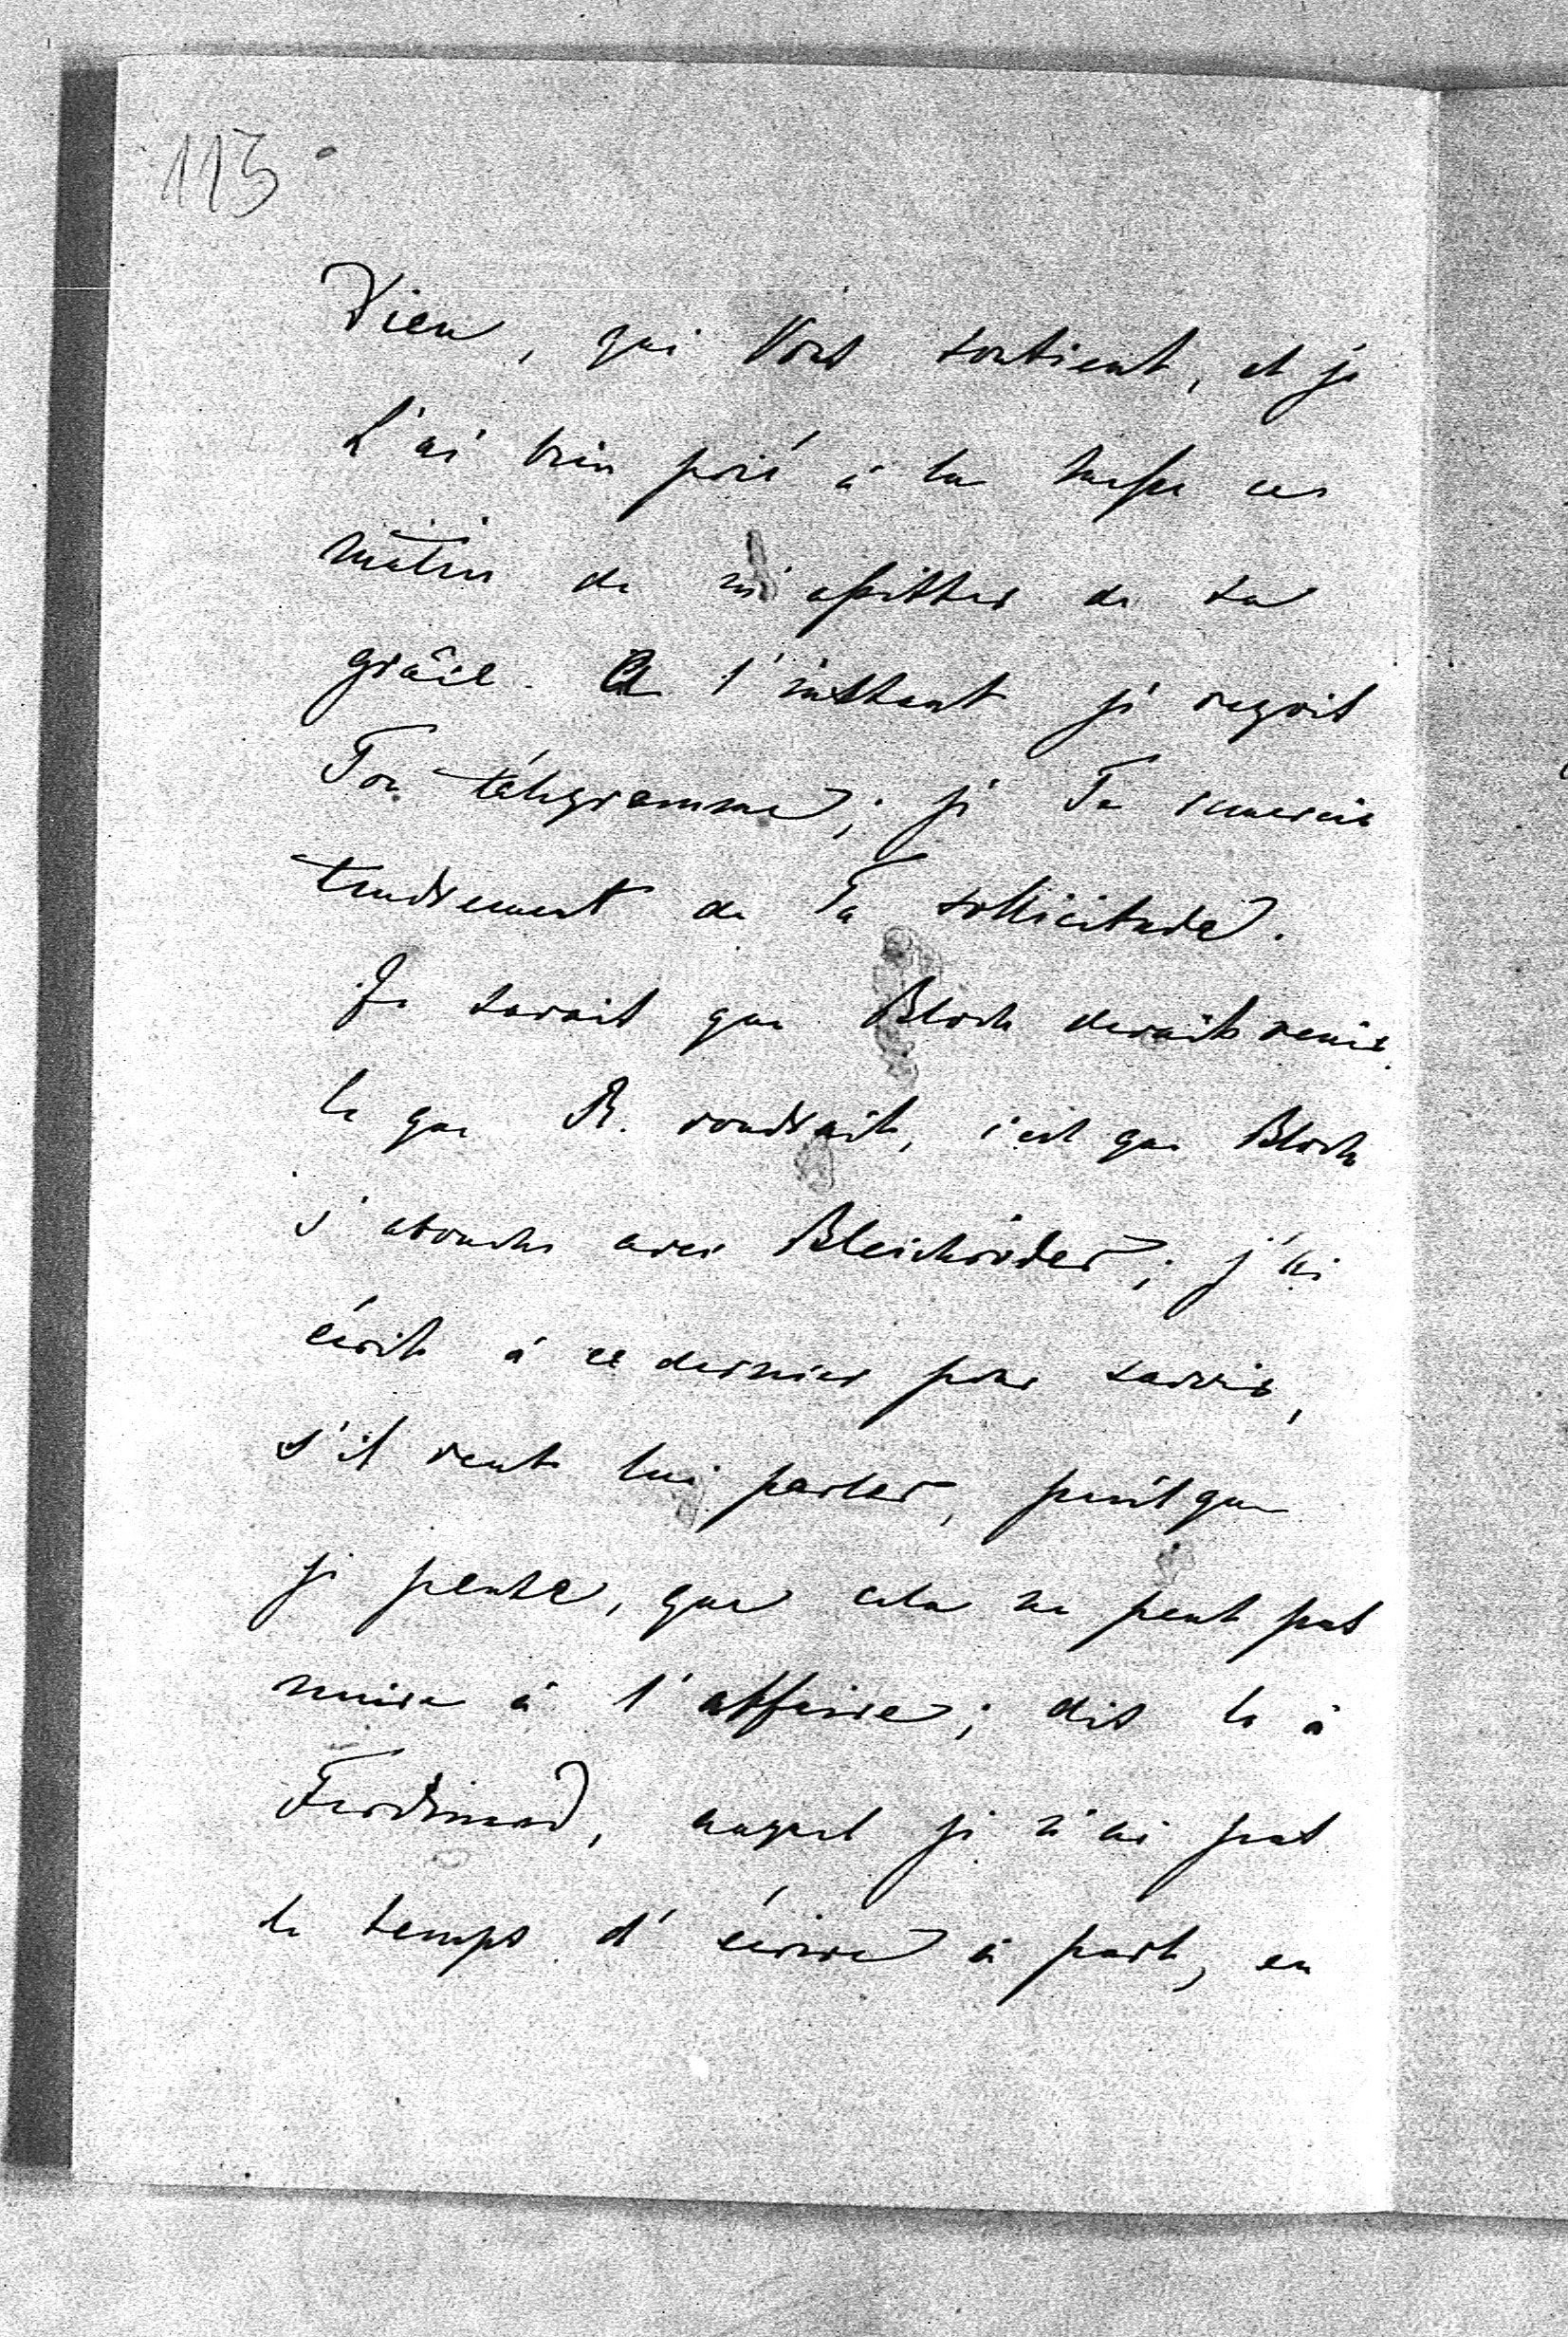 113
Dieu, qui Vous soutient, et je
L'ai bien prié à la messe ce
mâtin de m'assister de sa
grâce. A l'instant je reçois
Ton télégramme; je Te remercie
tendrement de Ta sollicitude.
Je savais que Bloch devait venir.
Ce que B. voudrait, c'est que Bloch
s'abouche avec Bleichröder; j'ai
écrit à ce dernier pour savoir,
s'il veut lui parler, puisque
je pense, que cela ne peut pas
nuire à l'affaire; dis le à
Ferdinand, auquel je n'ai pas
le temps d'écrire à part, en